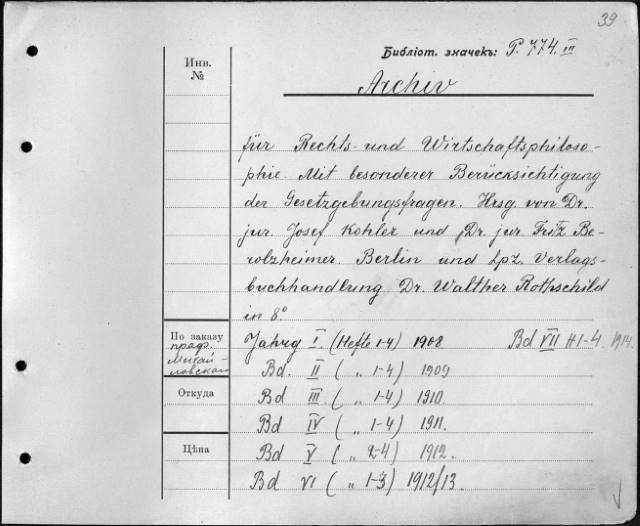 39
Библіот. значекъ: P. 774. III
Инв.
№
Archiv
für Rechts- und Wirtschaftsphiloso-
phie. Mit besonderer Berücksichtigung
der Gesetzgebungsfragen. Hrsg. von Dr.
jur. Josef Kohler und Dr. jur Fritz Be-
rolzheimer. Berlin und Lpz. Verlags-
buchhandlung Dr. Walther Rothschild
in 8°
По заказу
проф.
Михай-
ловскаго
Jahrg I. (Hefte 1-4) 1908 Bd VII H 1-4. 1914.
Bd. II ( „ 1-4) 1909
Откуда
Bd III ( „ 1-4) 1910.
Bd IV ( „ 1-4) 1911.
Цѣна
Bd V ( „ 2-4) 1912.
Bd VI ( „ 1-3) 1912/13.